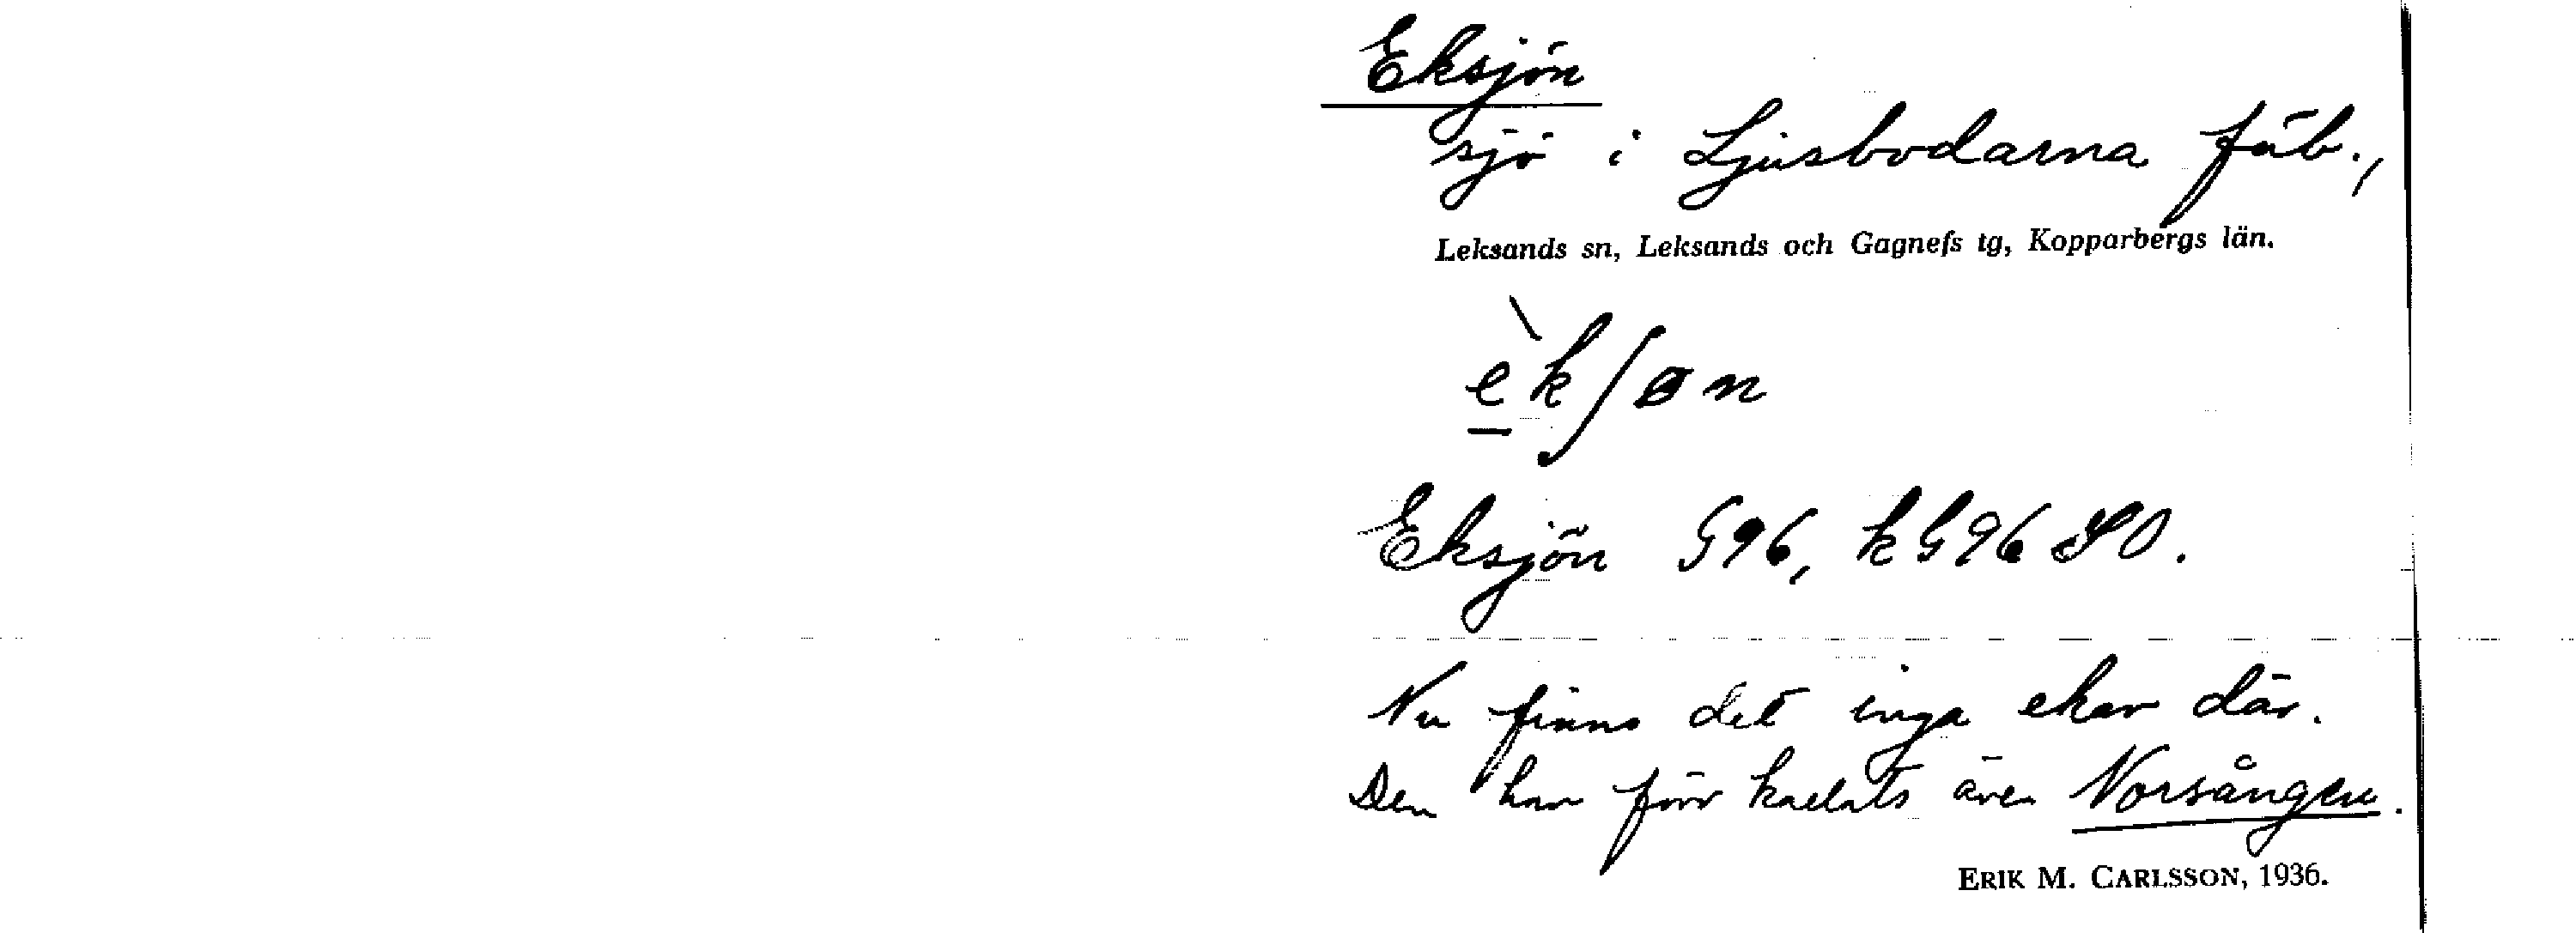 Eksjön
sjö i Ljusbodarna fäb.,
Leksands sn, Leksands och Gagnefs tg, Kopparbergs län.
èkʃøn
Eksjön G96, kG96 SO.
Nu finns det inga ekar där.
Den har förr kallats även Norsången.
ERIK M. CARLSSON, 1936.